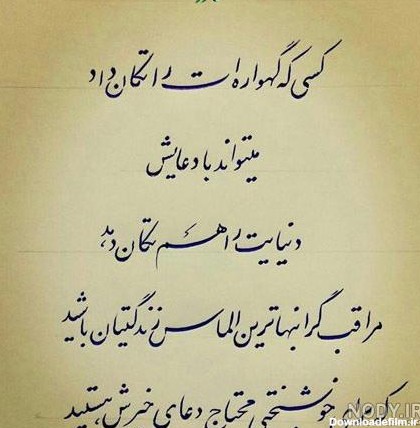 کسی که گهواره ات را تکان داد
میتواند با دعایش
دنیایت را هم تکان دهد
مراقب گرانبهاترین الماس زندگیتان باشید
که برای خوشبختی محتاج دعای خیرش هستید
NODY.IR
Downloadefilm.ir